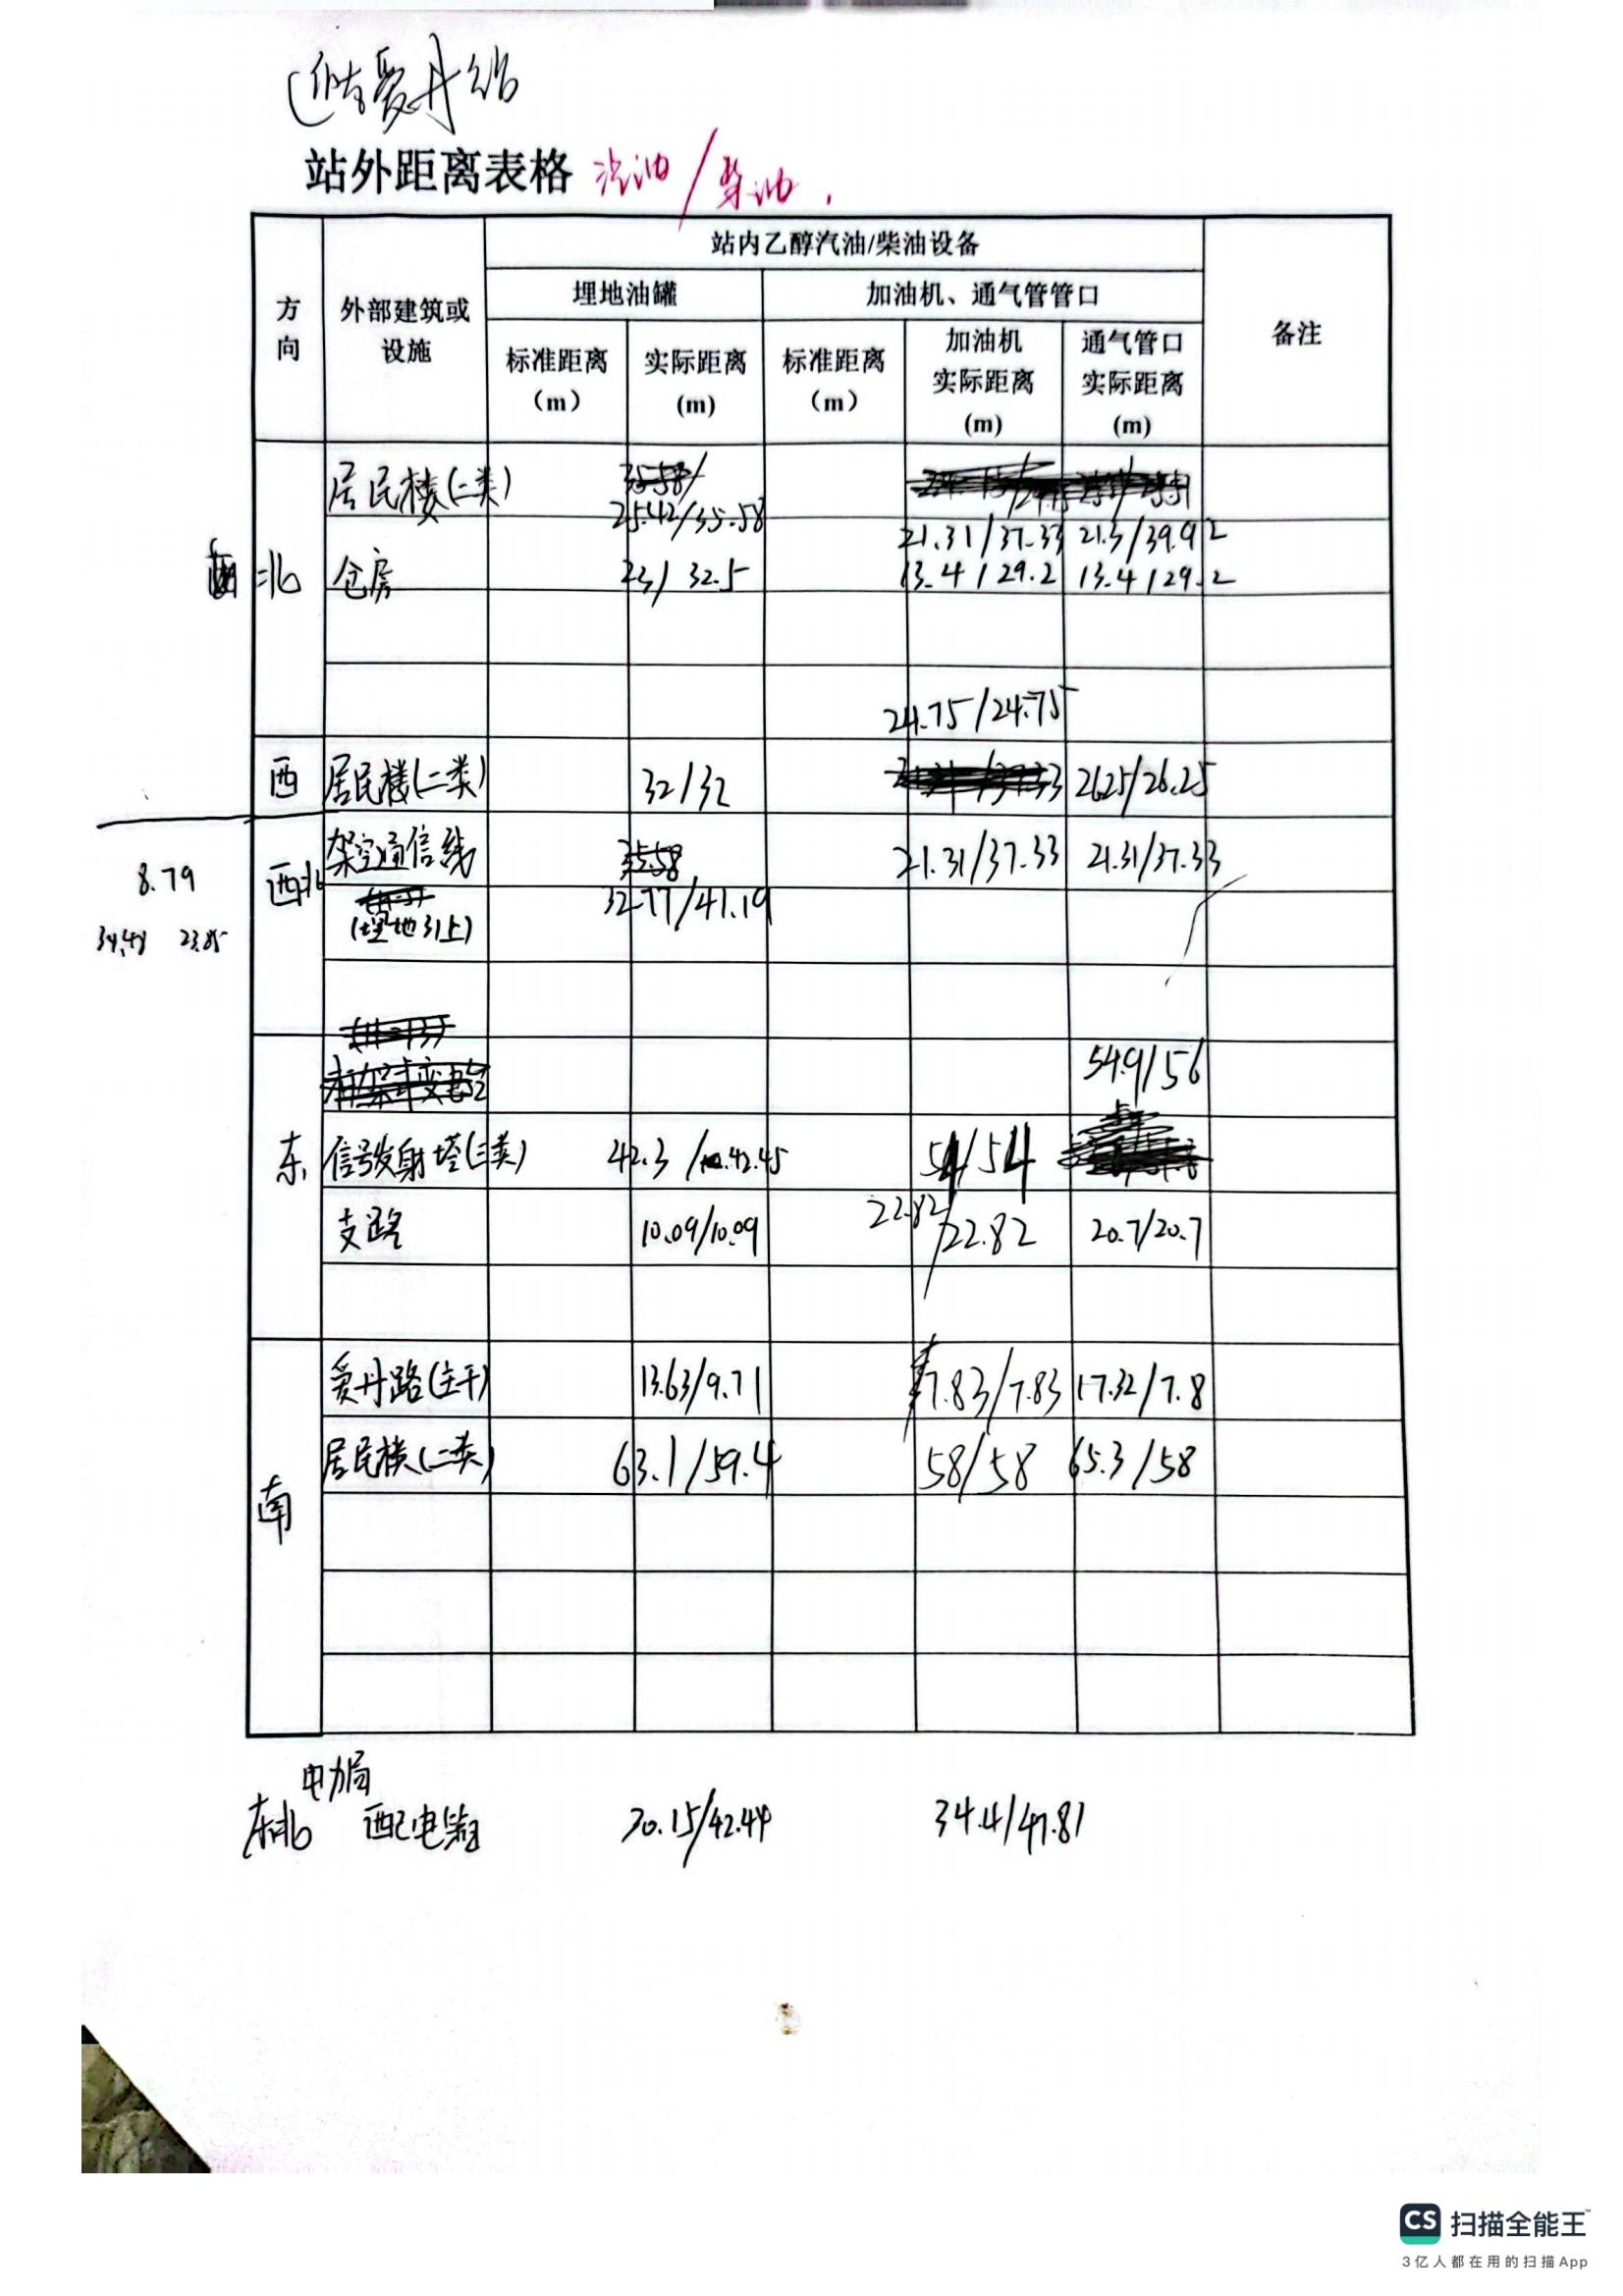 爱丹站
站外距离表格 汽油/柴油.
站内乙醇汽油/柴油设备
方向 外部建筑或设施 埋地油罐 加油机、通气管管口 备注
标准距离(m) 实际距离(m) 标准距离(m) 加油机实际距离(m) 通气管口实际距离(m)
居民楼(二类) 25.42/35.58 21.31/37.33 21.3/39.92
北 仓房 23/32.5 13.4/29.2 13.4/29.2
24.75/24.75
西 居民楼(二类) 32/32 26.25/26.25
8.79 西北 架空通信线 21.31/37.33 21.31/37.33
(埋地引上) 32.77/41.19
23.85
54.9/56
东 信号发射塔(三类) 42.3/42.45 54/54
支路 10.09/10.09 22.82/22.82 20.7/20.7
爱丹路(主干) 13.63/9.71 7.83/7.83 17.32/7.8
南 居民楼(二类) 63.1/59.4 58/58 65.3/58
电力局
东北 配电箱 30.15/42.44 34.4/47.81
CS 扫描全能王
3亿人都在用的扫描App